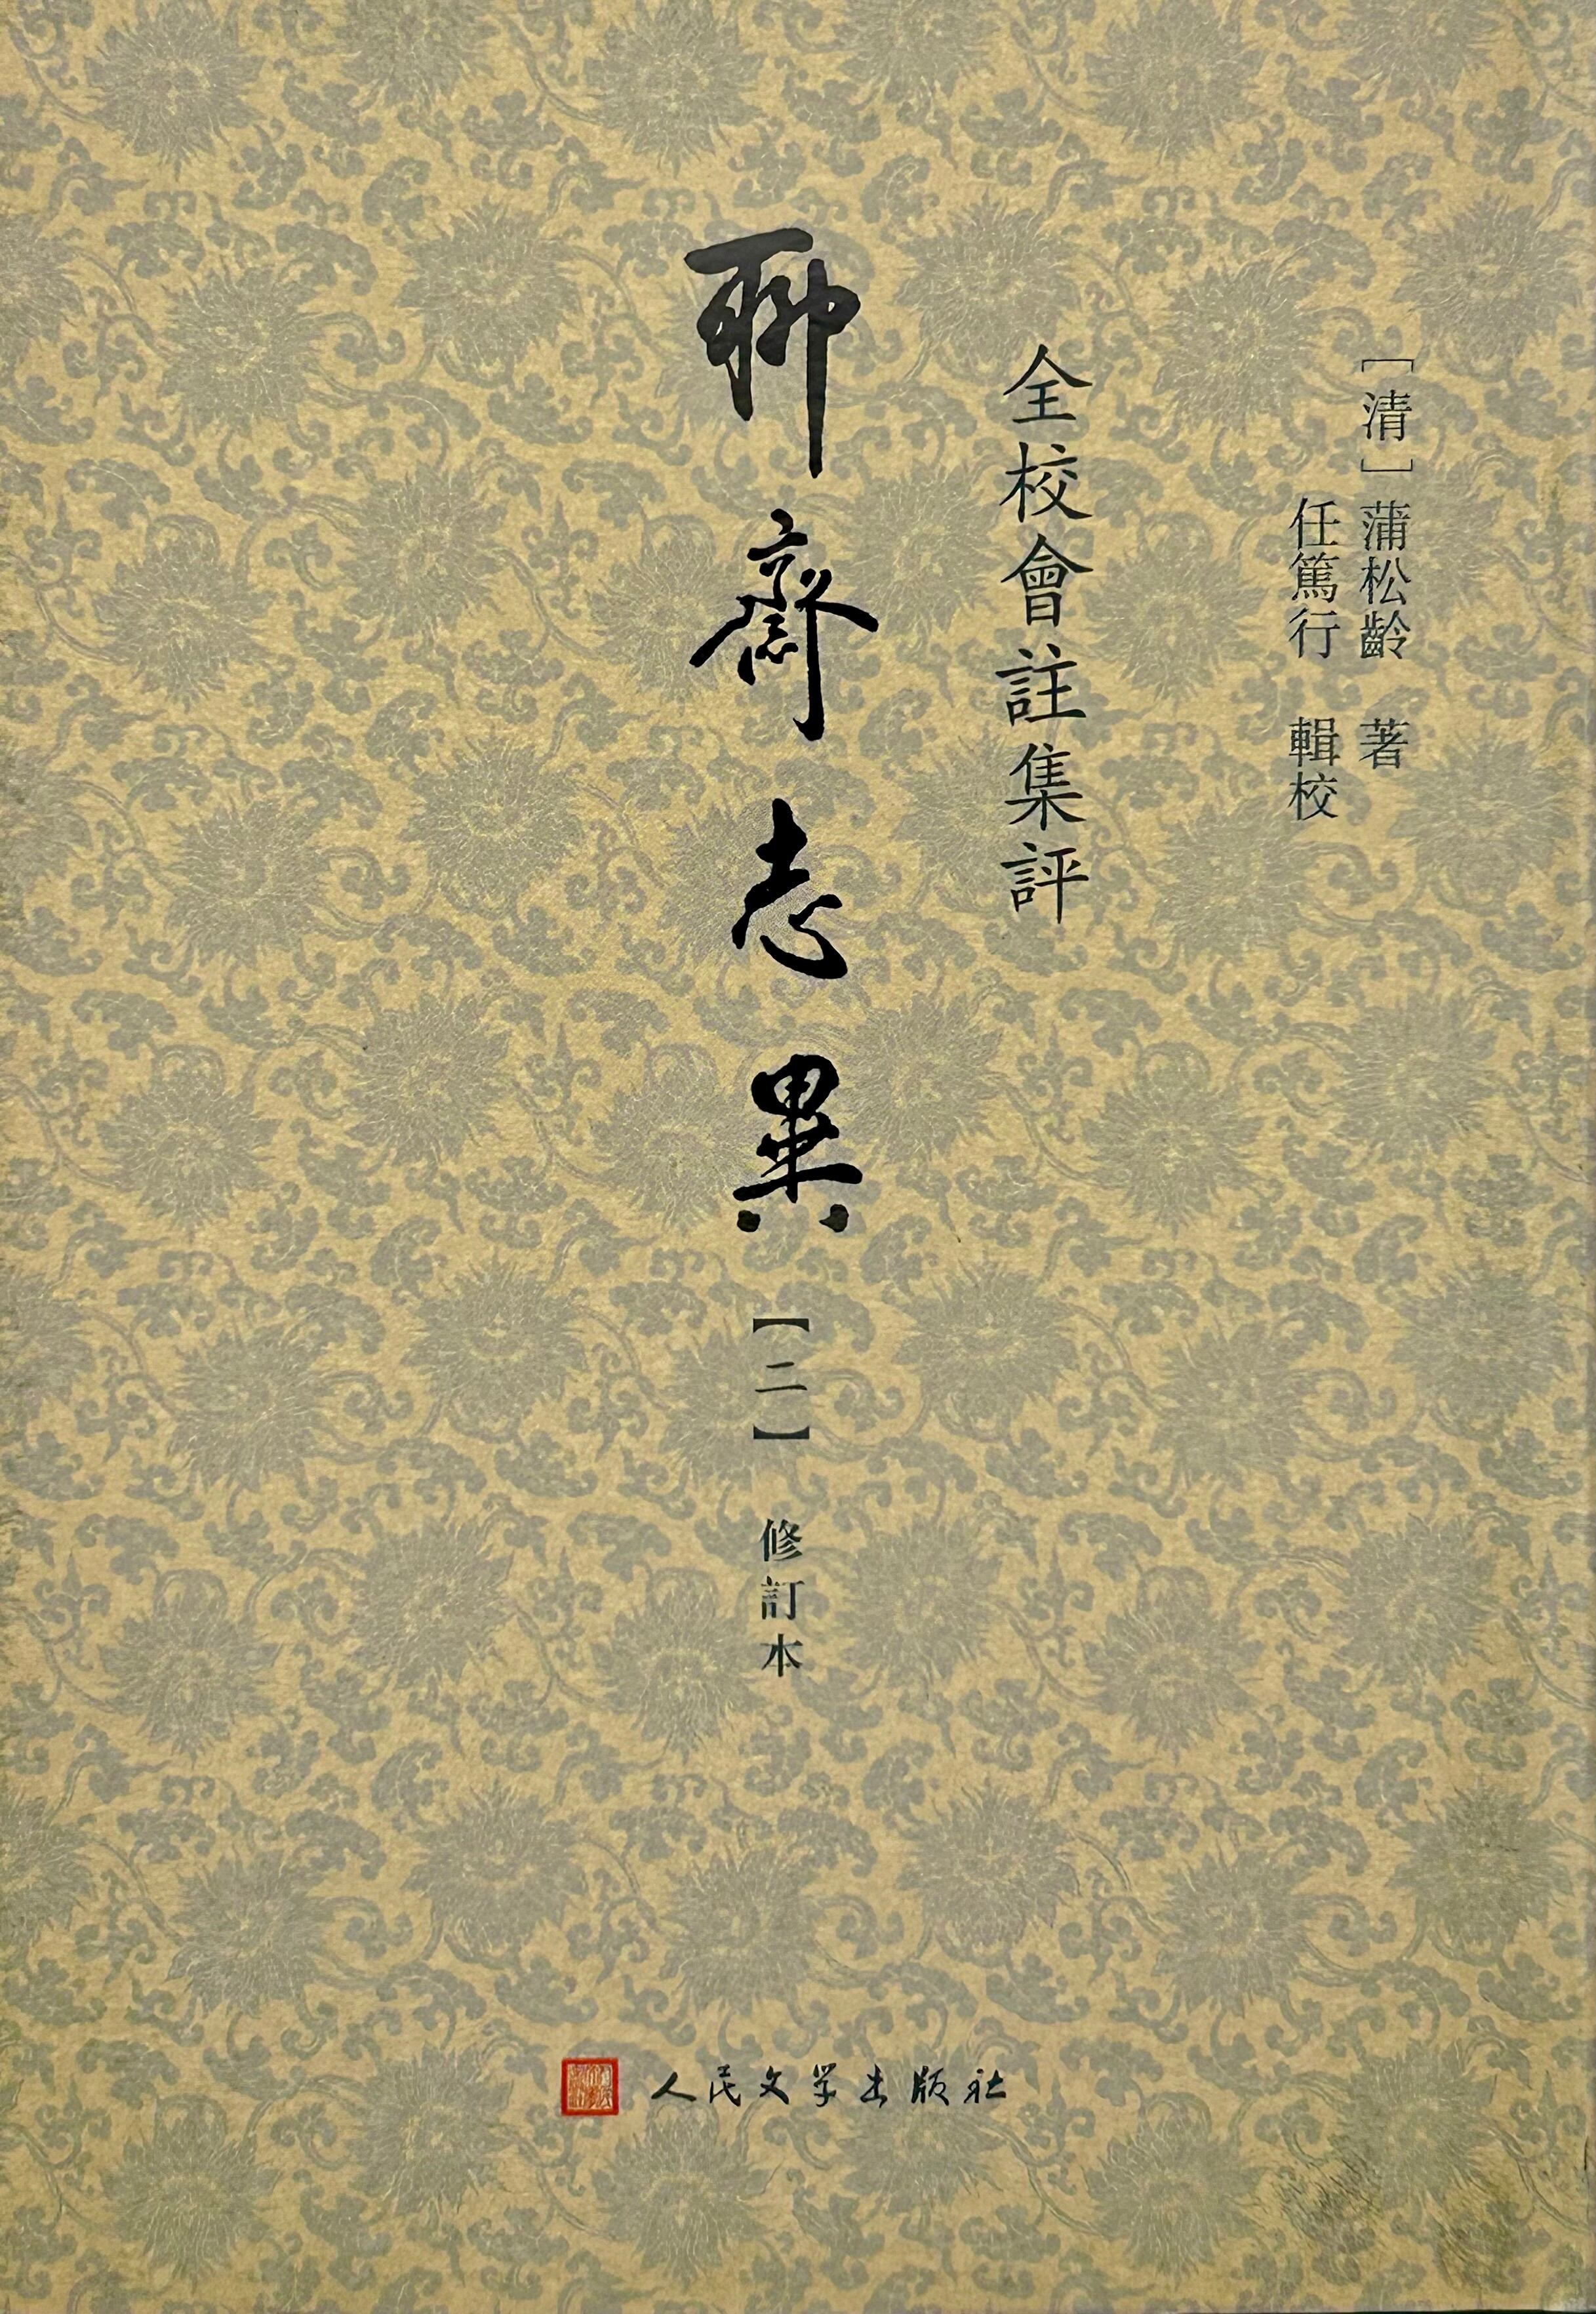 ［清］蒲松齡　著
任篤行　輯校
全校會註集評
聊齋志異【二】修訂本
人民文学出版社